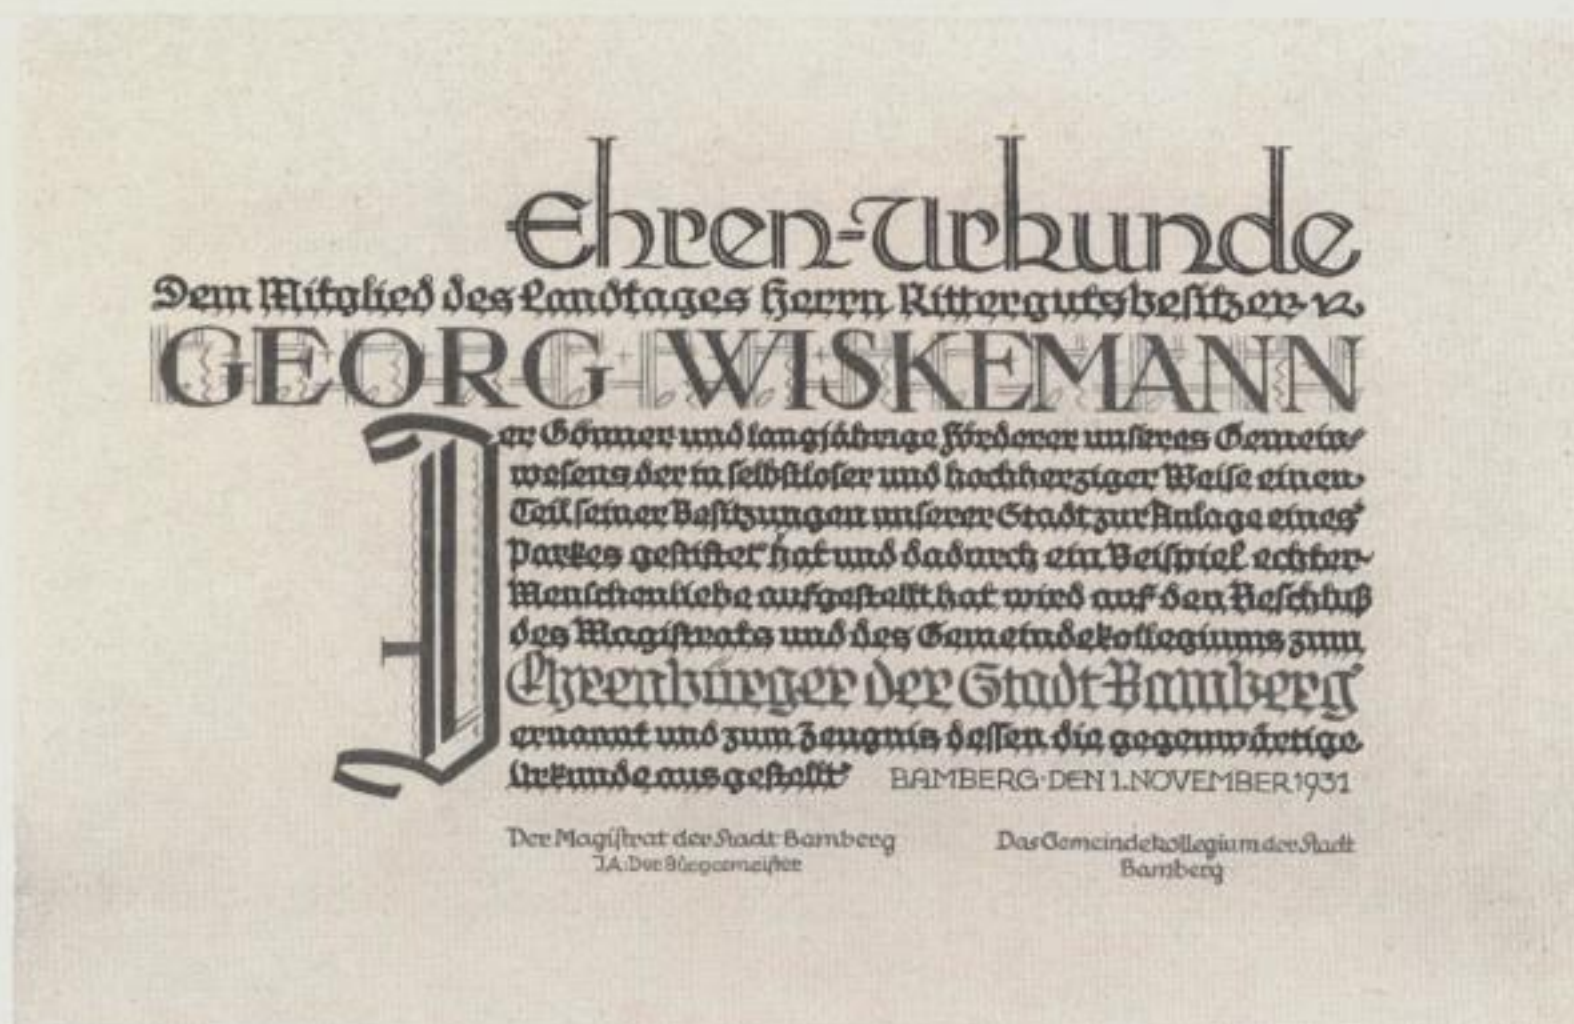 Ehren-Urkunde
Dem Mitglied des Landtages Herrn Rittergutsbesitzer
GEORG WISKEMANN
Der Gönner und langjährige Förderer unseres Gemein-
wesens der in selbstloser und hochherziger Weise einen
Teil seiner Besitzungen unserer Stadt zur Anlage eines
Parkes gestiftet hat und dadurch ein Beispiel echter
Menschenliebe aufgestellt hat wird auf den Beschluß
des Magistrats und des Gemeindekollegiums zum
Ehrenbürger der Stadt Bamberg
ernannt und zum Zeugnis dessen die gegenwärtige
Urkunde ausgestellt BAMBERG·DEN 1.NOVEMBER 1931
Der Magistrat der Stadt Bamberg
J.A: Der Bürgermeister
Das Gemeindekollegium der Stadt
Bamberg